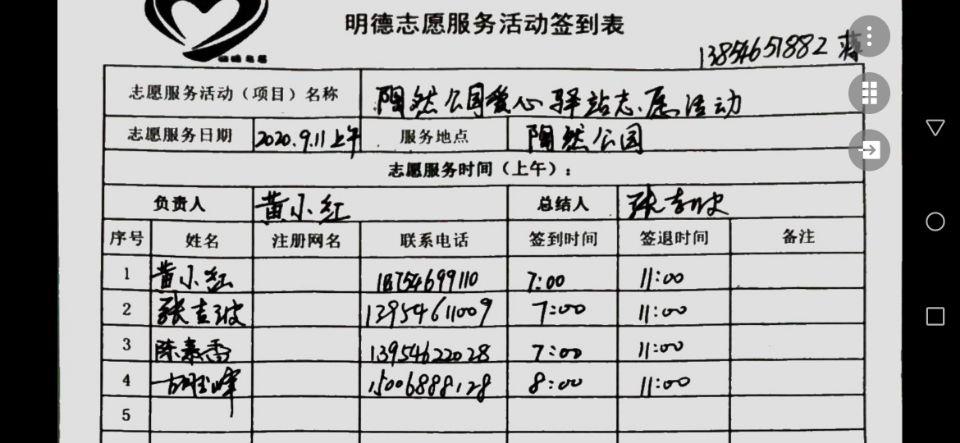 明德志愿服务活动签到表
13854651882
志愿服务活动（项目）名称 陶然公园爱心驿站志愿活动
志愿服务日期 2020.9.11上午 服务地点 陶然公园
志愿服务时间（上午）：
负责人 黄小红 总结人 张吉波
序号 姓名 注册网名 联系电话 签到时间 签退时间 备注
1 黄小红 18754699110 7:00 11:00
2 张吉波 13954611009 7:00 11:00
3 陈素香 13954622028 7:00 11:00
4 胡玉峰 15006888128 8:00 11:00
5